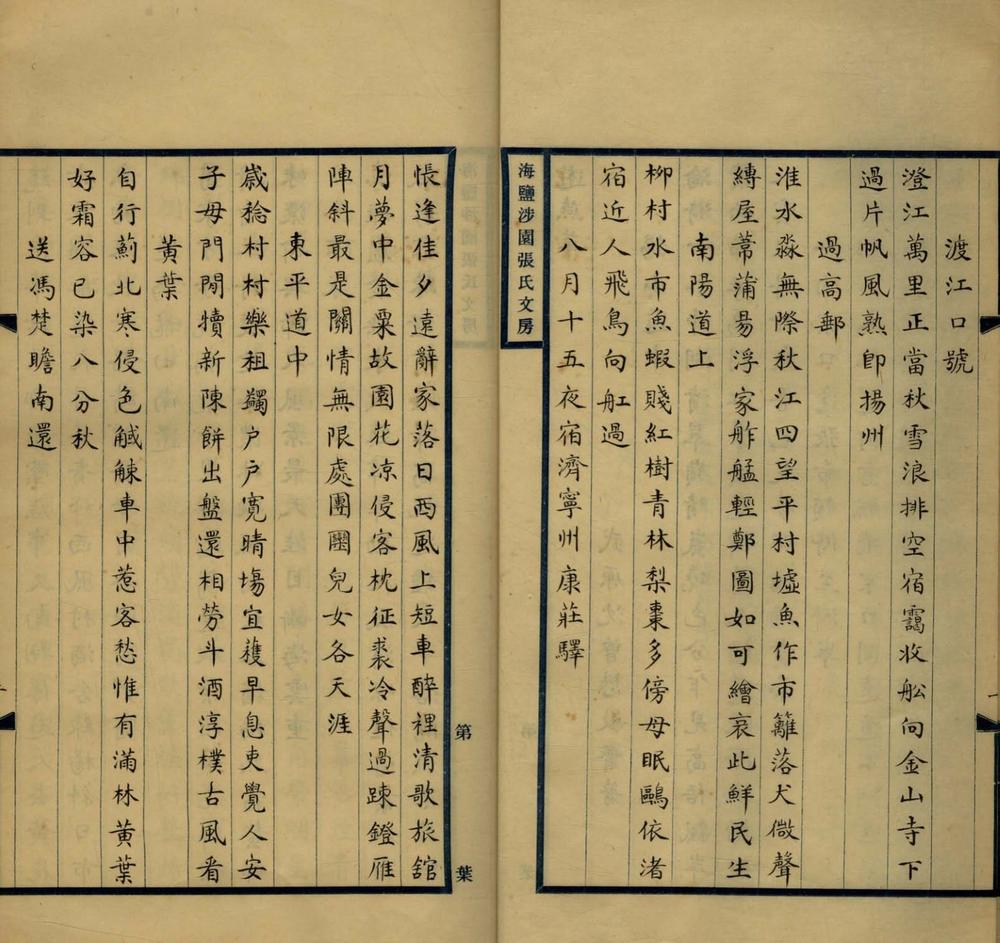 渡江口號
澄江萬里正當秋雪浪排空宿靄收舩向金山寺下
過片帆風熟卽揚州
過高郵
淮水淼無際秋江四望平村墟魚作市籬落犬微聲
縛屋葦蒲易浮家舴艋輕鄭圖如可繪哀此鮮民生
南陽道上
柳村水市魚蝦賤紅樹青林梨棗多傍母眠鷗依渚
宿近人飛鳥向舡過
八月十五夜宿濟寧州康莊驛
海鹽涉園張氏文房
悵逢佳夕遠辭家落日西風上短車醉裡清歌旅舘
月夢中金粟故園花凉侵客枕征裘冷聲過踈鐙雁
陣斜最是關情無限處團圞兒女各天涯
東平道中
歲稔村村樂租蠲户户寛晴塲宜蓻早息吏覺人安
子母門閒犢新陳餅出盤還相勞斗酒淳樸古風看
黃葉
自行薊北寒侵色觱觫車中惹客愁惟有滿林黄葉
好霜容已染八分秋
送馮楚瞻南還
第 葉